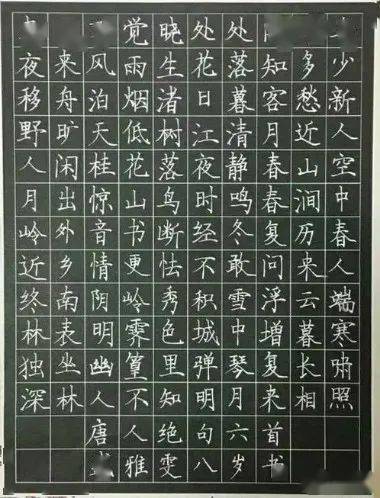 觉晓处处
夜来风雨生花落知多少
移舟泊烟渚日暮客愁新
野旷天低树江清月近人
人闲桂花落夜静春山空
月出惊山鸟时鸣春涧中
岭外音书断经冬复历春
近乡情更怯不敢问来人
终南阴岭秀积雪浮云端
林表明霁色城中增暮寒
独坐幽篁里弹琴复长啸
深林人不知明月来相照
唐人绝句六首
雅雯八岁书